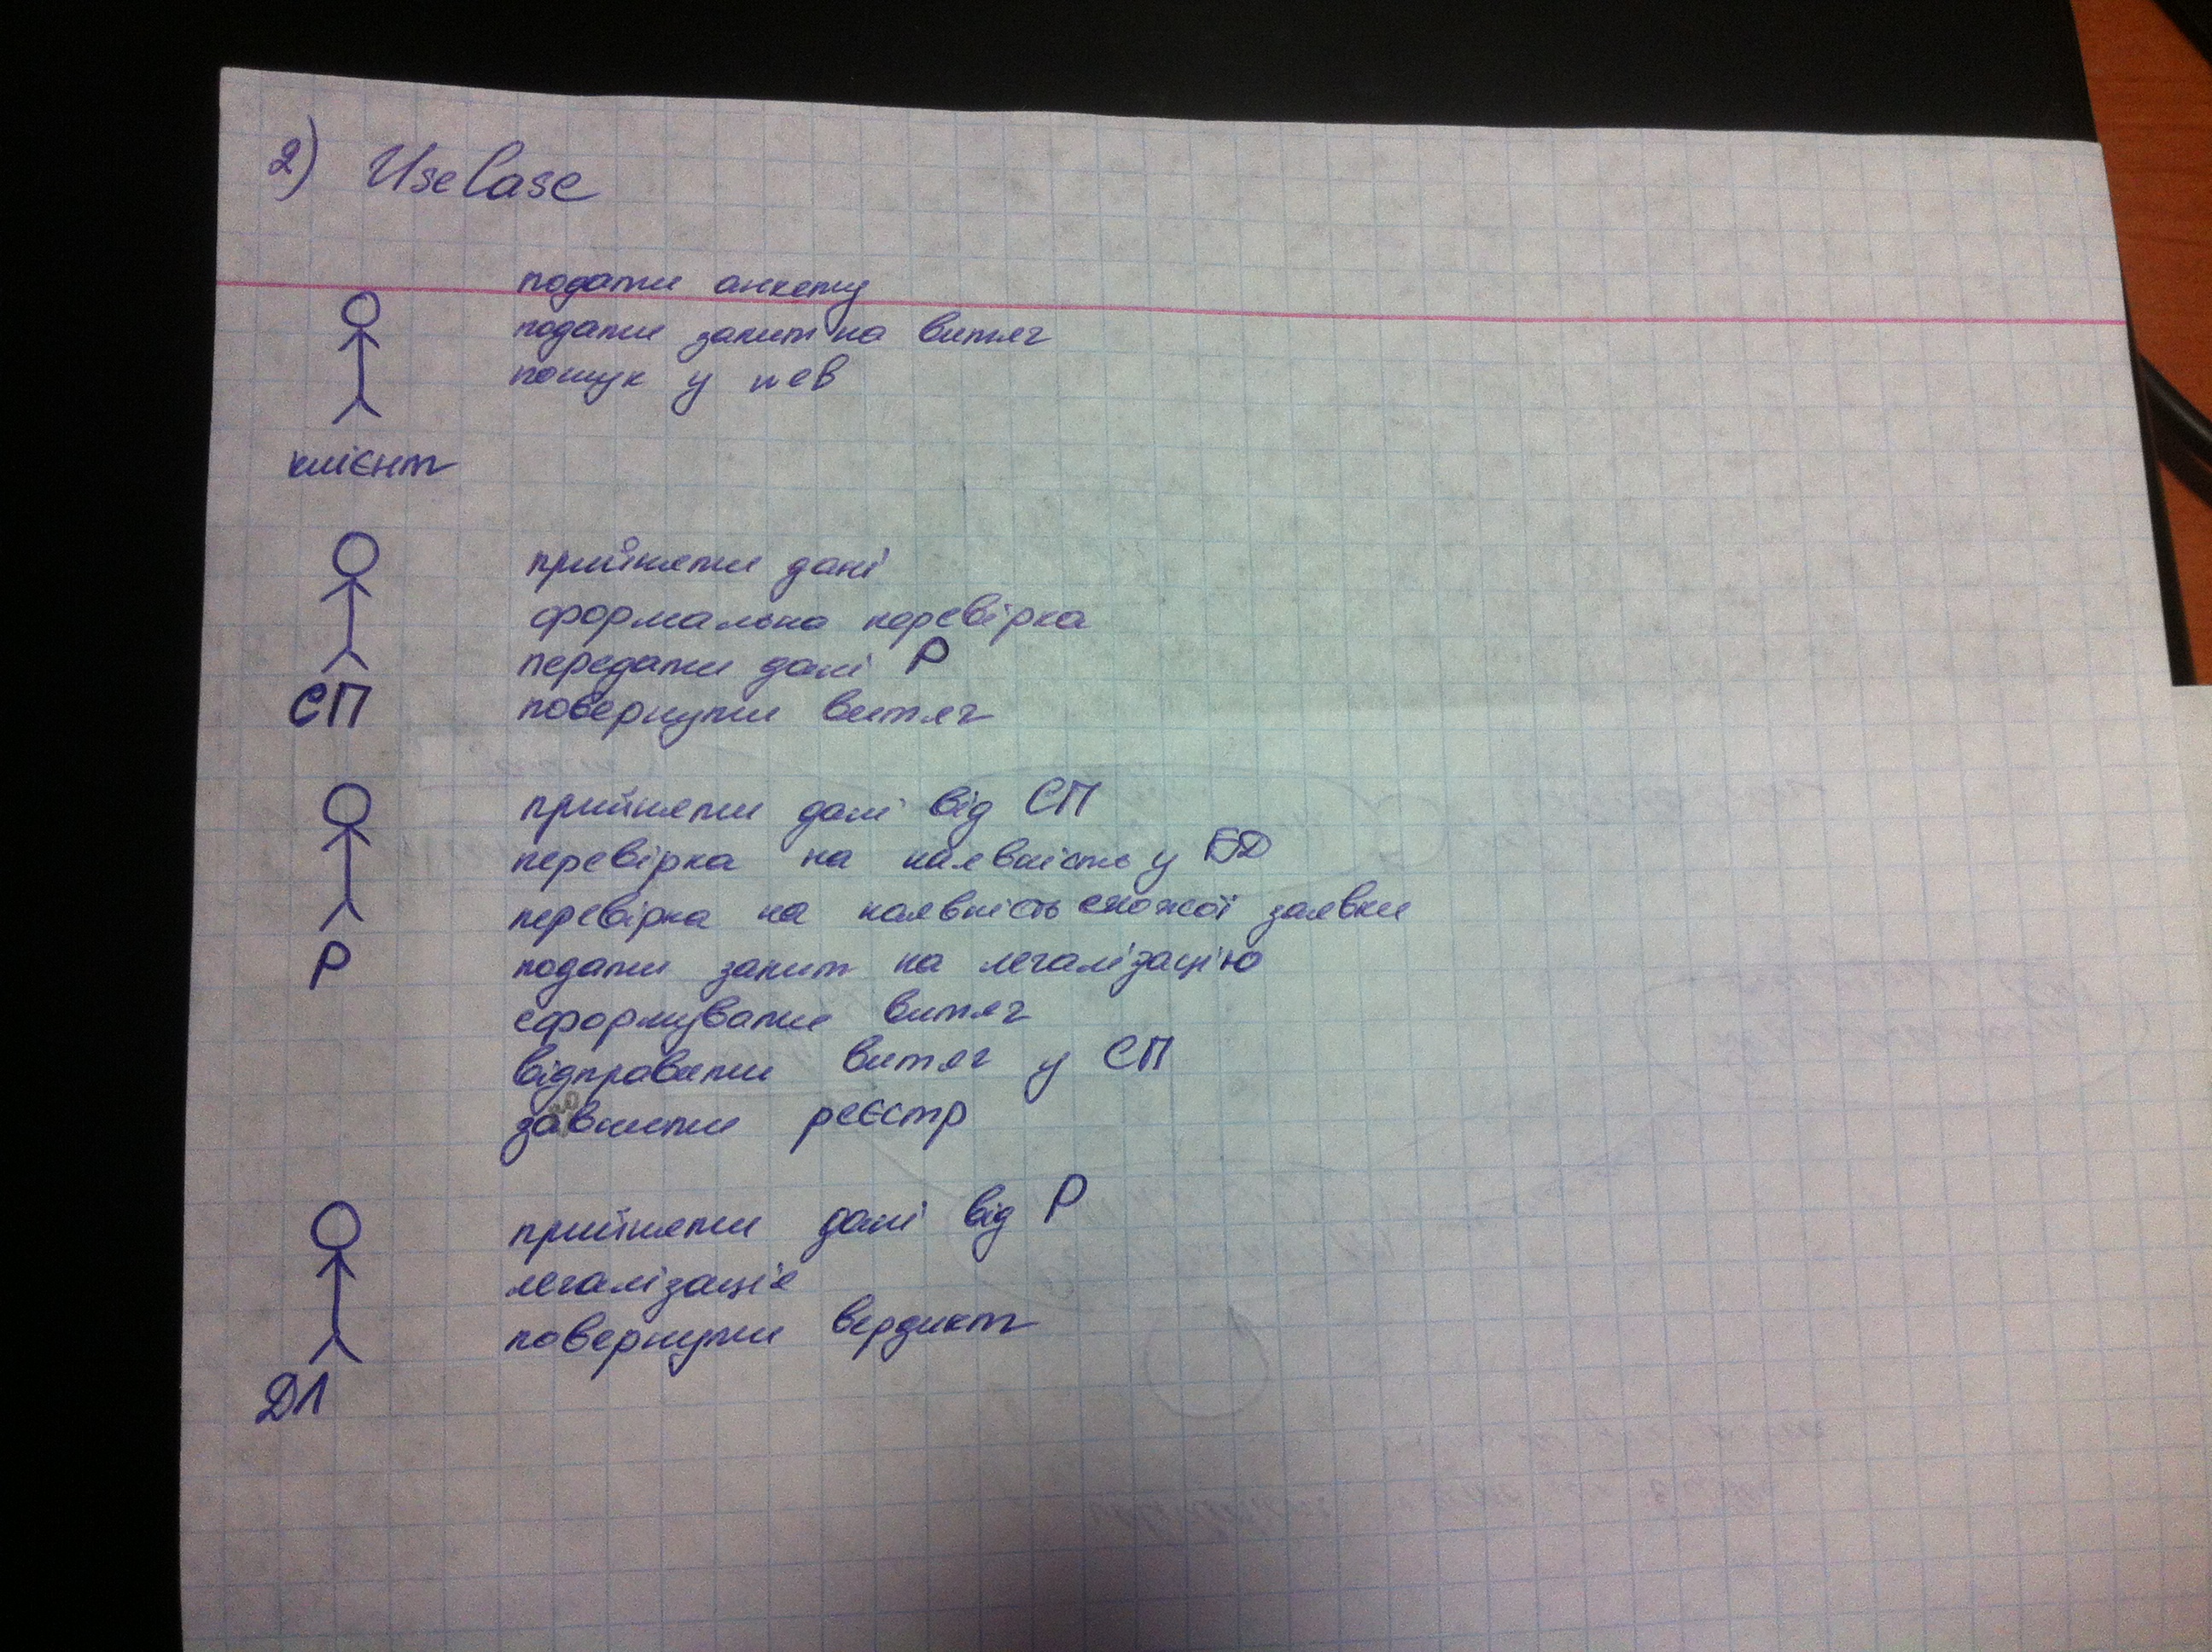 2) UseCase
подати анкету
подати запит на витяг
пошук у
клієнт
прийняти дані
формальна перевірка
передати дані Р
повернути витяг
СП
прийняти дані від СП
перевірка на наявність у БД
перевірка на наявність схожої заявки
подати запит на легалізацію
сформувати витяг
відправити витяг у СП
реєстр
Р
прийняти дані від Р
легалізація
повернути вердикт
ДЛ